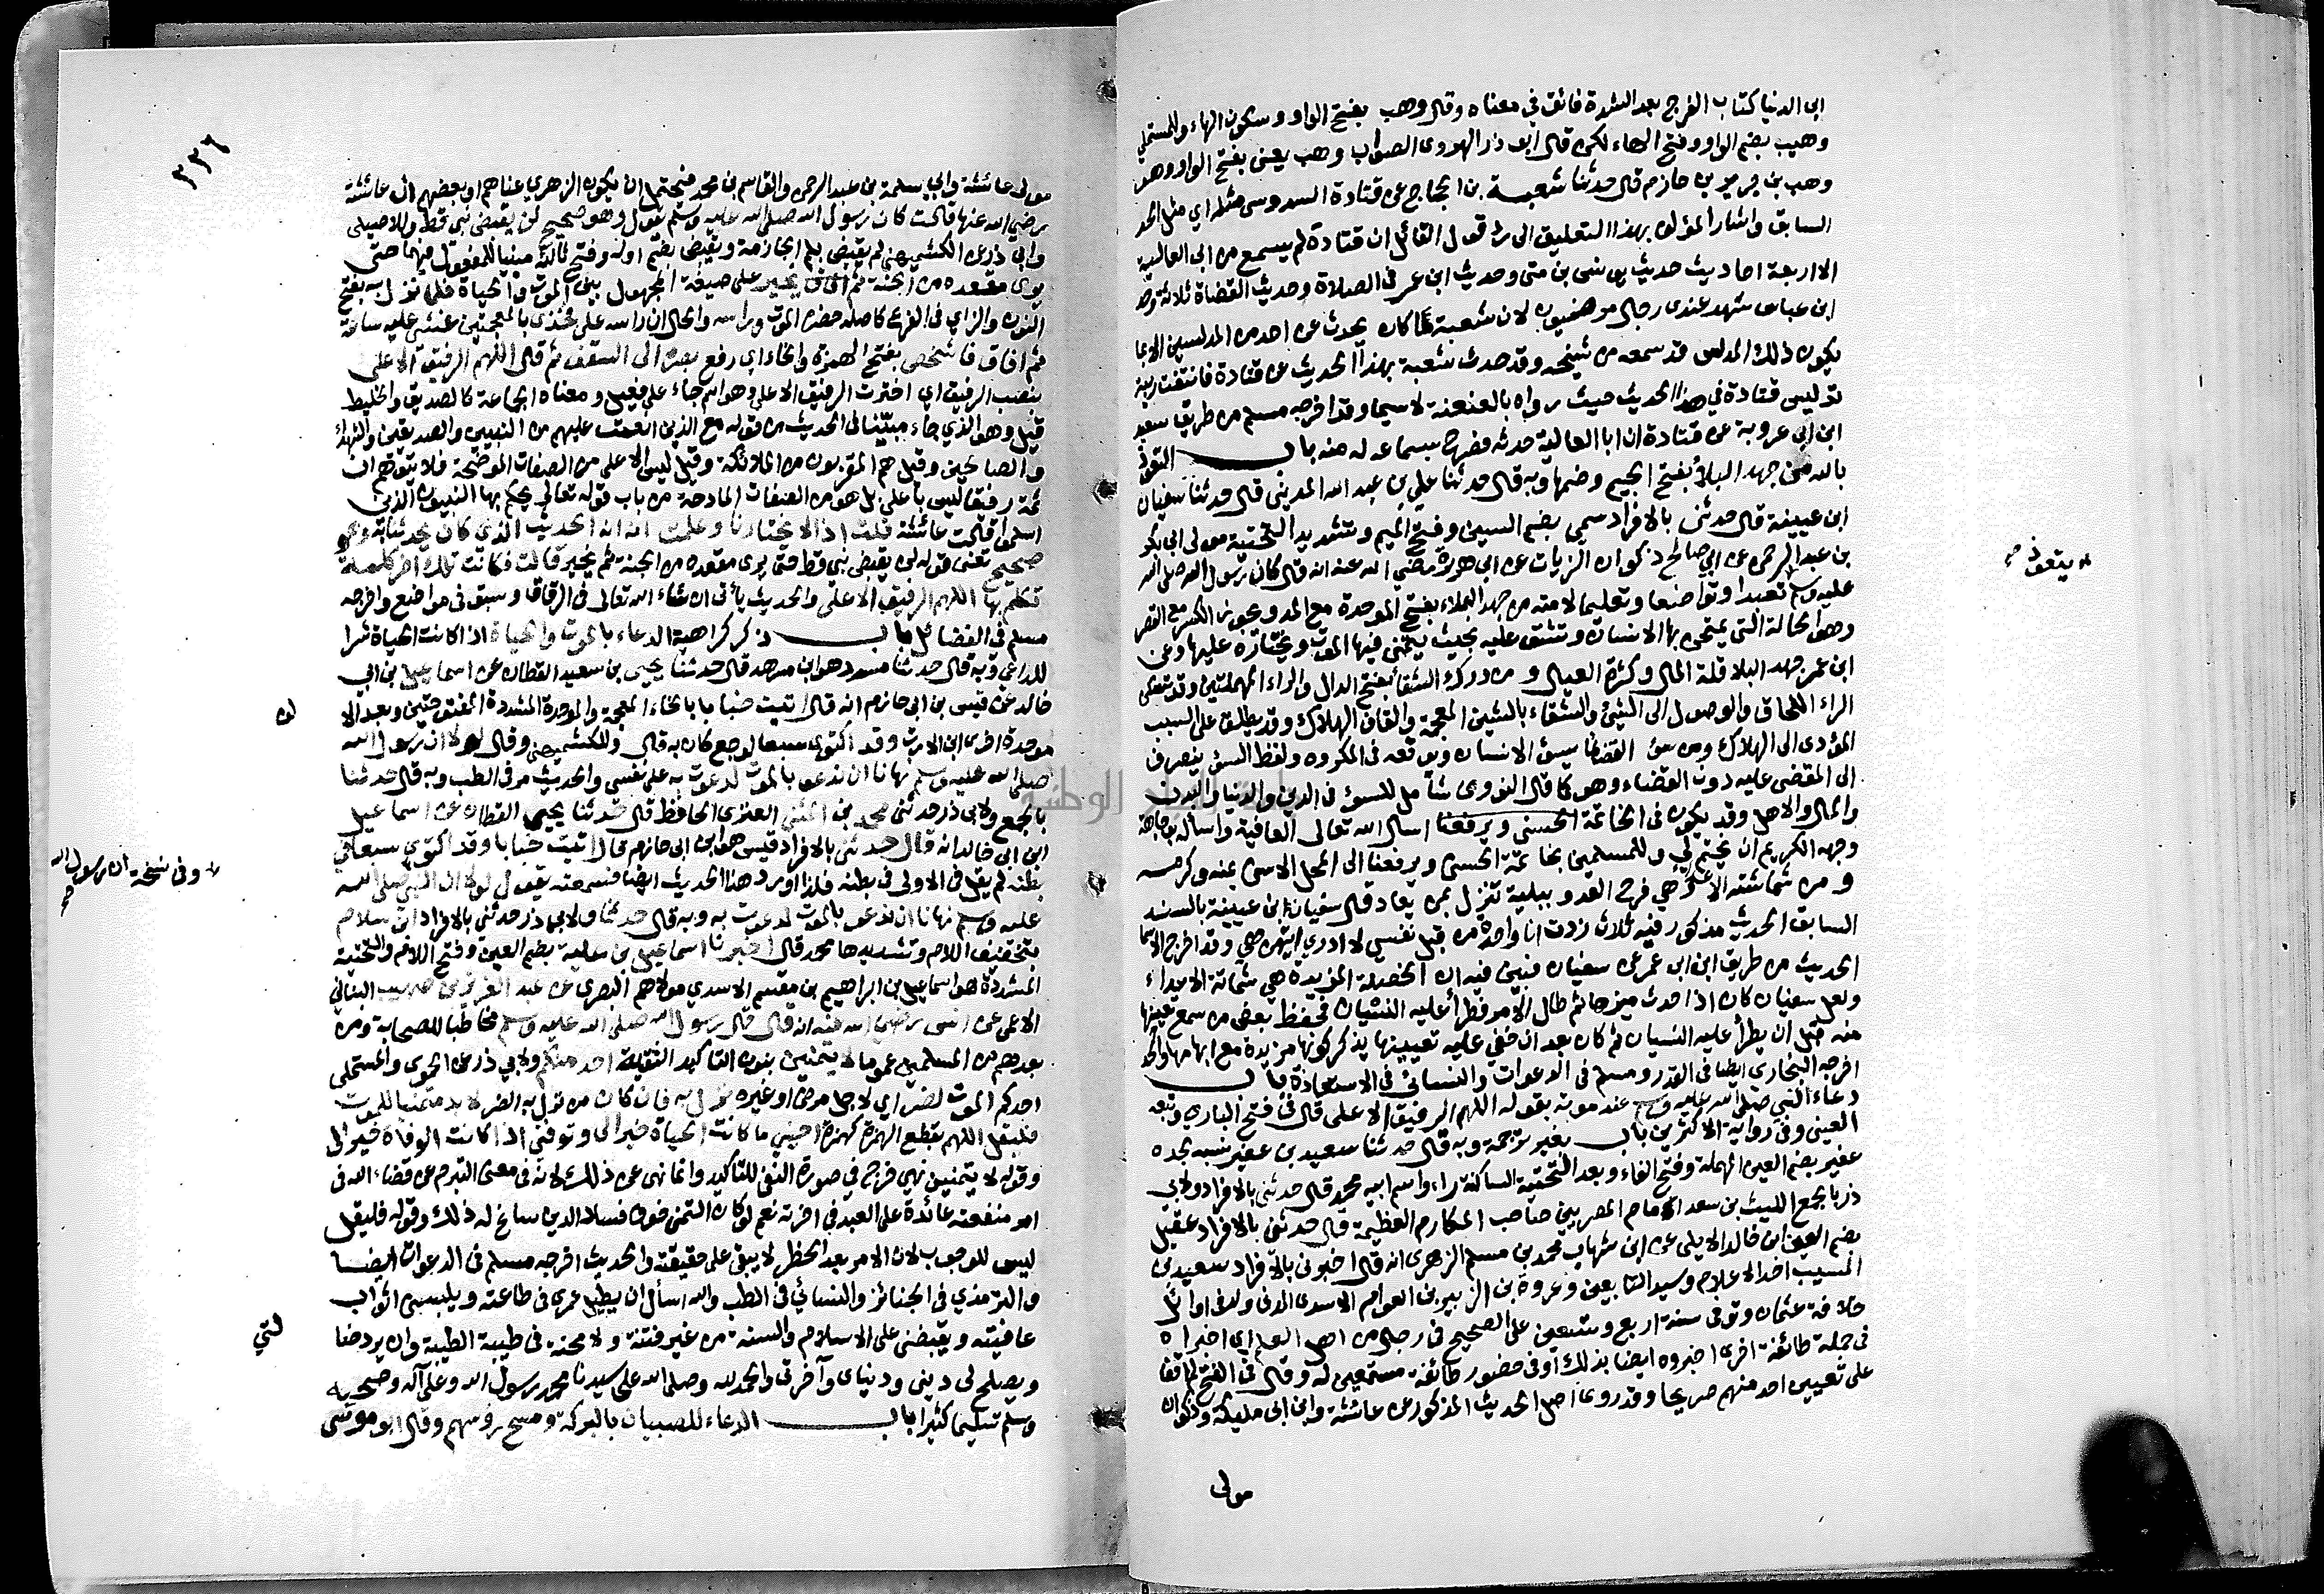 ابي الدنيا كتاب الفرج بعد الشدة فائق في معناه وقال وهب بفتح الواو وسكون الهاء وللمستملي
وهيب بضم الواو وفتح الهاء لكن قال ابو ذر الهروي الصواب وهب يعني بفتح الواو وهو
وهب بن جرير بن حازم قال حدثنا شعبة بن الحجاج عن قتادة السدوسي مثله اي مثل الحد
السابق واشار المؤلف بهذا التعليق الى رد قول القائل ان قتادة لم يسمع من ابي العالية
الا اربعة احاديث حديث يونس بن متى وحديث ابن عمر في الصلاة وحديث القضاة ثلاثة وحد
ابن عباس شهد عندي رجال مرضيون لان شعبة ما كان يحدث عن احد من المدلسين الا بما
يكون ذلك المدلس قد سمعه من شيخه وقد حدث شعبة بهذا الحديث عن قتادة فانتفت ريبة
تدليس قتادة في هذا الحديث حيث رواه بالعنعنة لاسيما وقد اخرجه مسلم من طريق سعيد
ابن ابي عروبة عن قتادة ان ابا العالية حدثه فصرح بسماعه له منه باب التعوذ
بالله من جهد البلاء بفتح الجيم وضمها وبه قال حدثنا علي بن عبد الله المديني قال حدثنا سفيان
ابن عيينة قال حدثني بالافراد سمي بضم السين وفتح الميم وتشديد التحتية مولى ابي بكر
بن عبد الرحمن عن ابي صالح ذكوان الزيات عن ابي هريرة رضي الله عنه انه قال كان رسول الله صلى الله
يتعوذ صح
عليه وسلم تعبدا وتواضعا وتعليما لامته من جهد البلاء بفتح الموحدة مع المد ويجوز الكسر مع القصر
وهو الحالة التي يمتحن بها الانسان وتشق عليه بحيث يتمنى فيها الموت ويختاره عليها وعن
ابن عمر جهد البلا قلة المال وكثرة العيال ومن درك الشقاء بفتح الدال والراء المهملتين وقد تسكن
الراء اللحاق والوصول الى الشئ والشقاء بالشين المعجمة والقاف الهلاك وقد يطلق على السبب
المؤدي الى الهلاك ومن سوء القضا ما يسوء الانسان ويوقعه في المكروه ولفظ السوء ينصرف
الى المقضي عليه دون القضاء وهو كما قال النووي شامل للسوء في الدين والدنيا والبدن
والمال والاهل وقد يكون في الخاتمة اسال الله تعالى العافية واساله بوجاهة
وجهه الكريم ان يختم لي وللمسلمين بخاتمة الحسنى ويرفعنا الى المحل الاسنى بمنه وكرمه
ومن شماتة الاعداء هي فرح العدو ببلية تنزل بمن يعاد قال سفيان بن عيينة بالسند
السابق الحديث مذكور فيه ثلاث زدت انا واحدة من قبل نفسي لا ادري ايتهن هي وقد اخرج الاسما
الحديث من طريق ابن ابي عمر عن سفيان فبين فيه ان الخصلة المزيدة هي شماتة الاعداء
ولعل سفيان كان اذا حدث ميزها ثم طال الامر فطرأ عليه النسيان فحفظ بعض من سمع تعيينها
منه قبل ان يطرأ عليه النسيان ثم كان بعد ان خفي عليه تعيينها يذكر كونها مزيدة مع ابهامها والحد
اخرجه البخاري ايضا في القدر ومسلم في الدعوات والنسائي في الاستعاذة باب
دعاء النبي صلى الله عليه وسلم عند موته بقوله اللهم الرفيق الاعلى قال في فتح الباري وتبعه
العيني وفي رواية الاكثرين باب بغير ترجمة وبه قال حدثنا سعيد بن عفير نسبه لجده
عفير بضم العين المهملة وفتح الفاء وبعد التحتية الساكنة راء واسم ابيه محمد قال حدثني بالافراد ولابي
ذر بالجمع الليث بن سعد الامام المصريين صاحب المكارم العظيمة قال حدثني بالافراد عقيل
بضم العين ابن خالد الايلي عن ابن شهاب محمد بن مسلم الزهري انه قال اخبرني بالافراد سعيد بن
المسيب احد الاعلام وسيد التابعين وعروة بن الزبير بن العوام الاسدي المدني ولد في اوائل
خلافة عثمان وتوفي سنة اربع وتسعين على الصحيح في رجال من اهل العلم اي اخبراه
في جملة طائفة اخرى اخبروه ايضا بذلك او في حضور طائفة مستمعين له وقال في الفتح لم اقف
على تعيين احد منهم صريحا وقد روى اصل الحديث المذكور عن عائشة وابن ابي مليكة وذكوان
مولى
٣٣٦
مولى عائشة وابي سلمة بن عبد الرحمن والقاسم بن محمد فيحتمل ان يكون الزهري عناهم او بعضهم ان عائشة
رضي الله عنها قالت كان رسول الله صلى الله عليه وسلم يقول وهو صحيح لن يقبض نبي قط وللاصيلي
وابي ذر عن الكشميهني لم يقبض بلم الجازمة ويقبض بضم اوله وفتح ثالثه مبنيا للمفعول فيهما حتى
يرى مقعده من الجنة ثم يخير على صيغة المجهول بين الموت والحياة فلما نزل به بفتح
النون والزاي في الفرع كاصله حضره الموت وراسه والحال ان راسه على فخذي بالمعجمتين غشي عليه ساعة
ثم افاق فاشخص بفتح الهمزة والخاء اي رفع بصره الى السقف ثم قال اللهم الرفيق الاعلى
بنصب الرفيق اي اخترت الرفيق الاعلى وهو اسم جاء على فعيل ومعناه الجماعة كالصديق والخليط
قيل وهو الذي جاء مبينا في الحديث من قوله مع الذين انعمت عليهم من النبيين والصديقين والشهداء
والصالحين وقيل هم المقربون من الملائكة وقيل ليس الاعلى من الصفات الموضحة فلا يتوهم ان
ثمة رفيقا ليس باعلى بل هو من الصفات المادحة من باب قوله تعالى يحكم بها النبيون الذين
اسلموا قالت عائشة قلت اذا لا يختارنا وعلمت انه الحديث الذي كان يحدثنا به وهو
صحيح تعني قوله لن يقبض نبي قط حتى يرى مقعده من الجنة ثم يخير قالت فكانت تلك اخر كلمة
تكلم بها اللهم الرفيق الاعلى والحديث يأتي ان شاء الله تعالى في الرقاق وسبق في مواضع واخرجه
مسلم في الفضائل باب ذكر كراهية الدعاء بالموت والحياة اذا كانت الحياة شرا
للداعي وبه قال حدثنا مسدد هو ابن مسرهد قال حدثنا يحيى بن سعيد القطان عن اسماعيل بن ابي
خالد عن قيس بن ابي حازم انه قال اتيت خبابا بالخاء المعجمة والموحدة المشددة المفتوحتين وبعد الا
موحدة اخرى ابن الارت وقد اكتوى سبعا لوجع كان به قال وللكشميهني وقال لولا ان رسول الله
صلى الله عليه وسلم نهانا ان ندعو بالموت لدعوت به على نفسي والحديث مر في الطب وبه قال حدثنا
بالجمع ولابي ذر حدثني محمد بن المثنى العنزي الحافظ قال حدثنا يحيى القطان عن اسماعيل
ابن ابي خالد انه قال حدثني بالافراد قيس هو ابن ابي حازم قال اتيت خبابا وقد اكتوى سبعا في
بطنه لم يقل في الاولى في بطنه فلذا اورد هذا الحديث ايضا فسمعته يقول لولا ان النبي صلى الله
وفي نسخة ان رسول الله صح
عليه وسلم نهانا ان ندعو بالموت لدعوت به وبه قال حدثنا ولابي ذر حدثني بالافراد ابن سلام
بتخفيف اللام وتشديدها محمد قال اخبرنا اسماعيل بن علية بضم العين وفتح اللام والتحتية
المشددة هو اسماعيل بن ابراهيم بن مقسم الاسدي مولاهم البصري عن عبد العزيز بن صهيب البناني
الاعمى عن انس رضي الله عنه انه قال قال رسول الله صلى الله عليه وسلم مخاطبا للصحابة ومن
بعدهم من المسلمين عموما لا يتمنين بنون التاكيد الثقيلة احد منكم ولابي ذر عن الحموي والمستملي
احدكم الموت لضر اي لاجل مرض او غيره نزل به فان كان من نزل به الضر لا بد متمنيا للموت
فليقل اللهم بقطع الهمزة كهمزة احيني ما كانت الحياة خيرا لي وتوفني اذا كانت الوفاة خيرا لي
وقوله لا يتمنين نهي خرج في صورة النفي للتاكيد وانما نهى عن ذلك لانه في معنى التبرم عن قضاء الله في
امر منفعته عائدة على العبد في اخرته نعم لو كان التمني خوف فساد الدين ساغ له ذلك وقوله فليقل
ليس للوجوب لان الامر بعد الحظر لا يبقى على حقيقته والحديث اخرجه مسلم في الدعوات ايضا
والترمذي في الجنائز والنسائي في الطب والله اسأل ان يطيل عمري في طاعته ويلبسني اثواب
عافيته ويقبضني على الاسلام والسنة من غير فتنة ولا محنة في طيبة الطيبة وان يرد ضا
لتي
ويصلح لي ديني ودنياي وآخرتي والحمد لله وصلى الله على سيدنا محمد رسول الله وعلى آله وصحبه
وسلم تسليما كثيرا باب الدعاء للصبيان بالبركة ومسح رؤسهم وقال ابو موسى